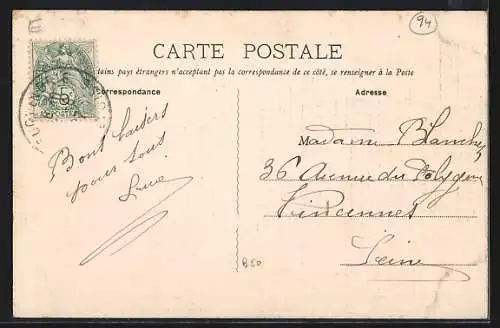 94
CARTE POSTALE
tains pays étrangers n'acceptant pas la correspondance de ce côté, se renseigner à la Poste
orrespondance
Adresse
5
POSTES
Bons baisers
pour tous
Madame Blanchey
36 Avenue du Polygone
Vincennes
Seine
B50